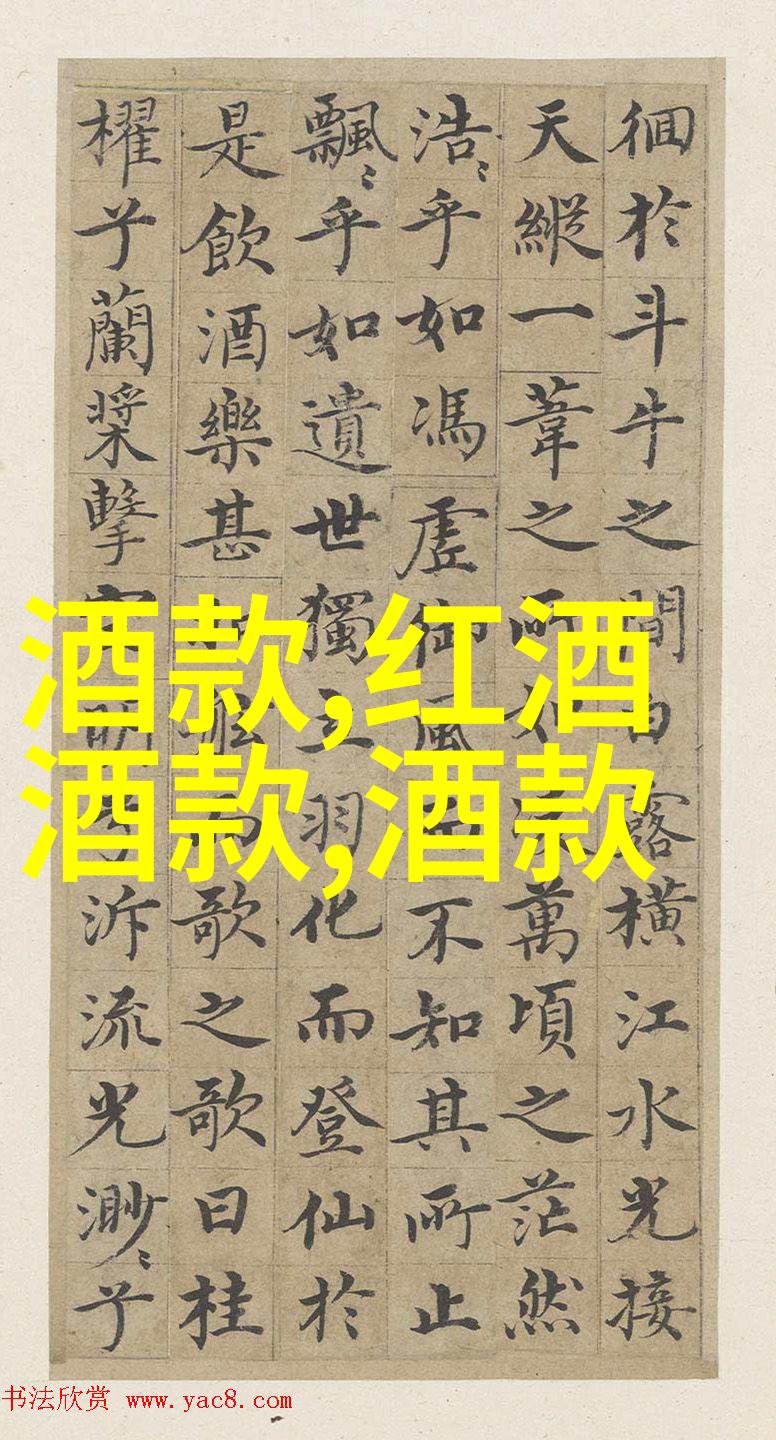 徊於斗牛之間白露橫江水光接
天縱一葦之所如凌萬頃之茫然
浩〻乎如馮虛御風而不知其所止
飄〻乎如遺世獨立羽化而登仙於
是飲酒樂甚扣舷而歌之歌曰桂
櫂兮蘭槳擊空明兮泝流光渺〻兮
酒款,红酒
酒款,酒款
书法欣赏 www.yac8.com